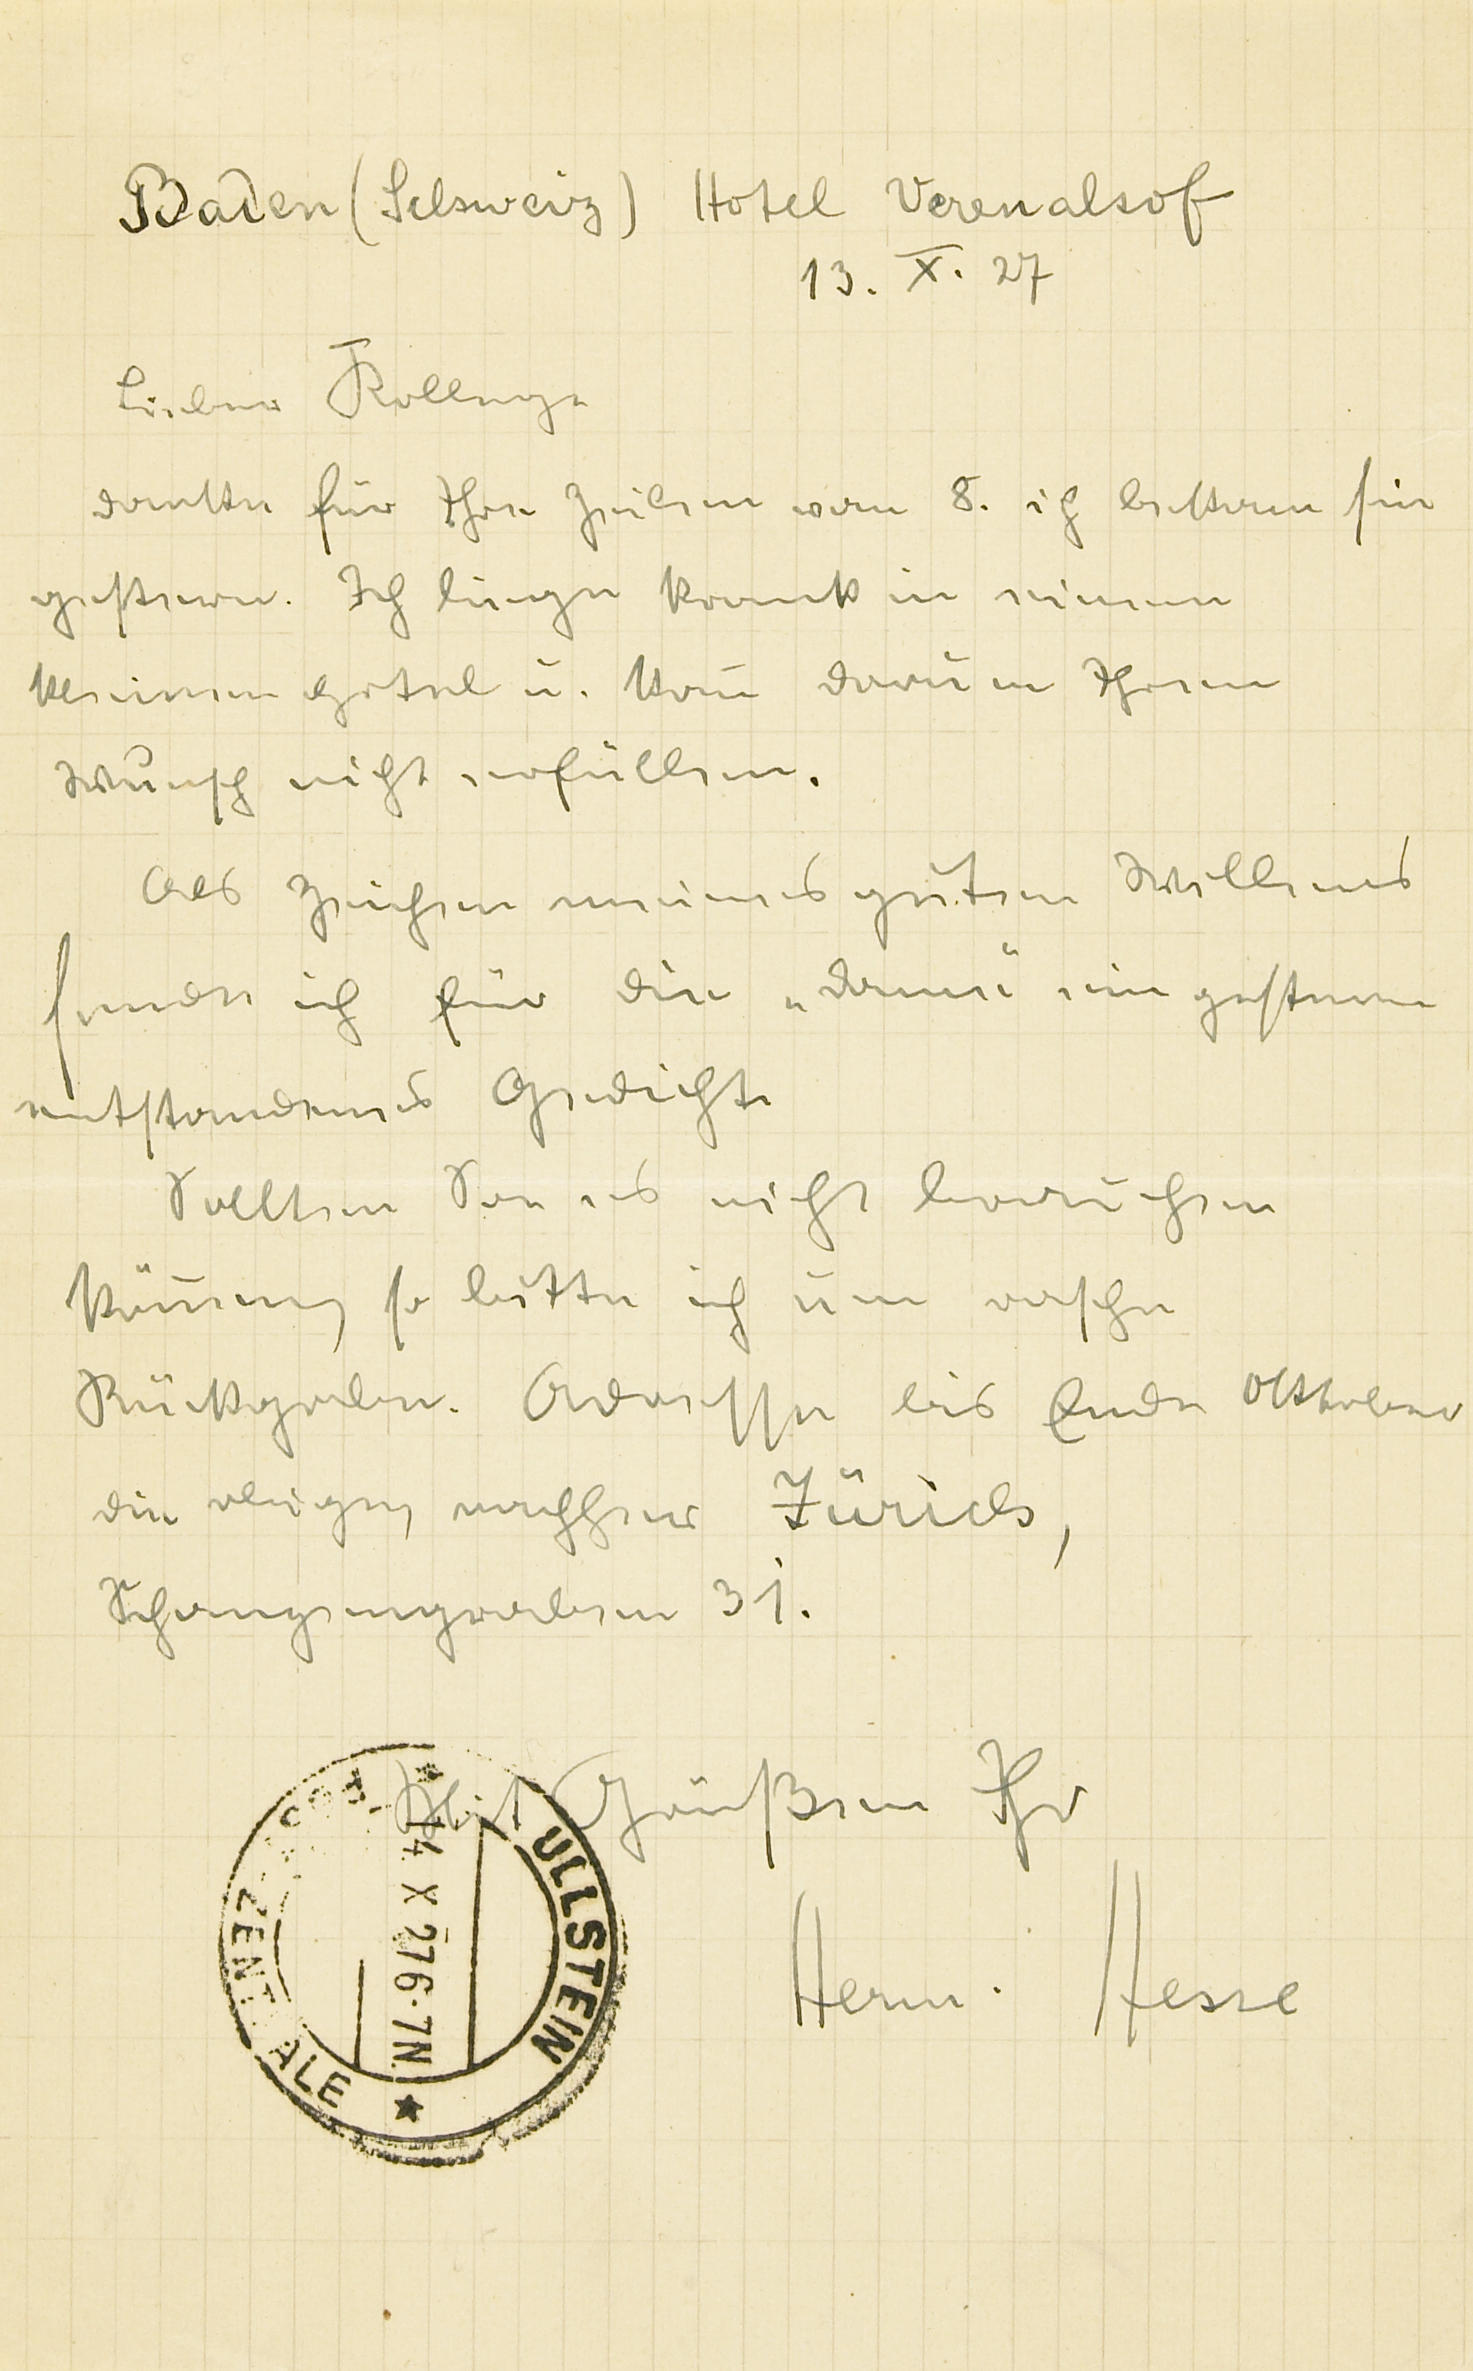 Baden (Schweiz) Hotel Verenahof
13. X. 27
Lieber Kollege
danke für Ihre Zeilen vom 8. ich bekam sie
gestern. Ich liege krank in einem
kleinen Hotel u. kañ darum Ihren
Wunsch nicht erfüllen.
Als Zeichen meines guten Willens
sende ich für die „Dame" ein gestern
entstandenes Gedicht
Sollten Sie es nicht brauchen
können, so bitte ich um rasche
Rückgabe. Adresse bis Ende Oktober
die obige, nachher Zürich,
Schanzengraben 31.
Mit Grüßen Ihr
Herm. Hesse
ULLSTEIN
14 X 27 6-7N
POST ZENTRALE